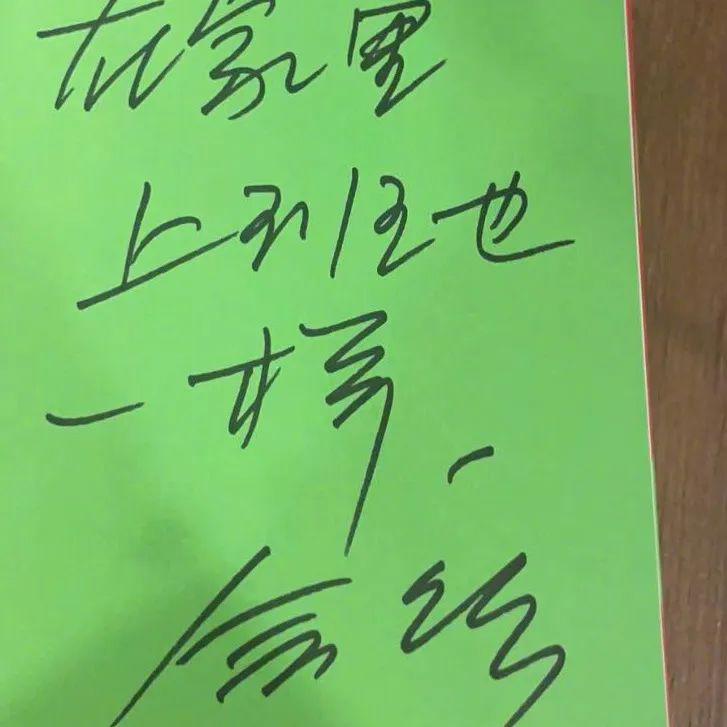 在家里
上班也
一样、